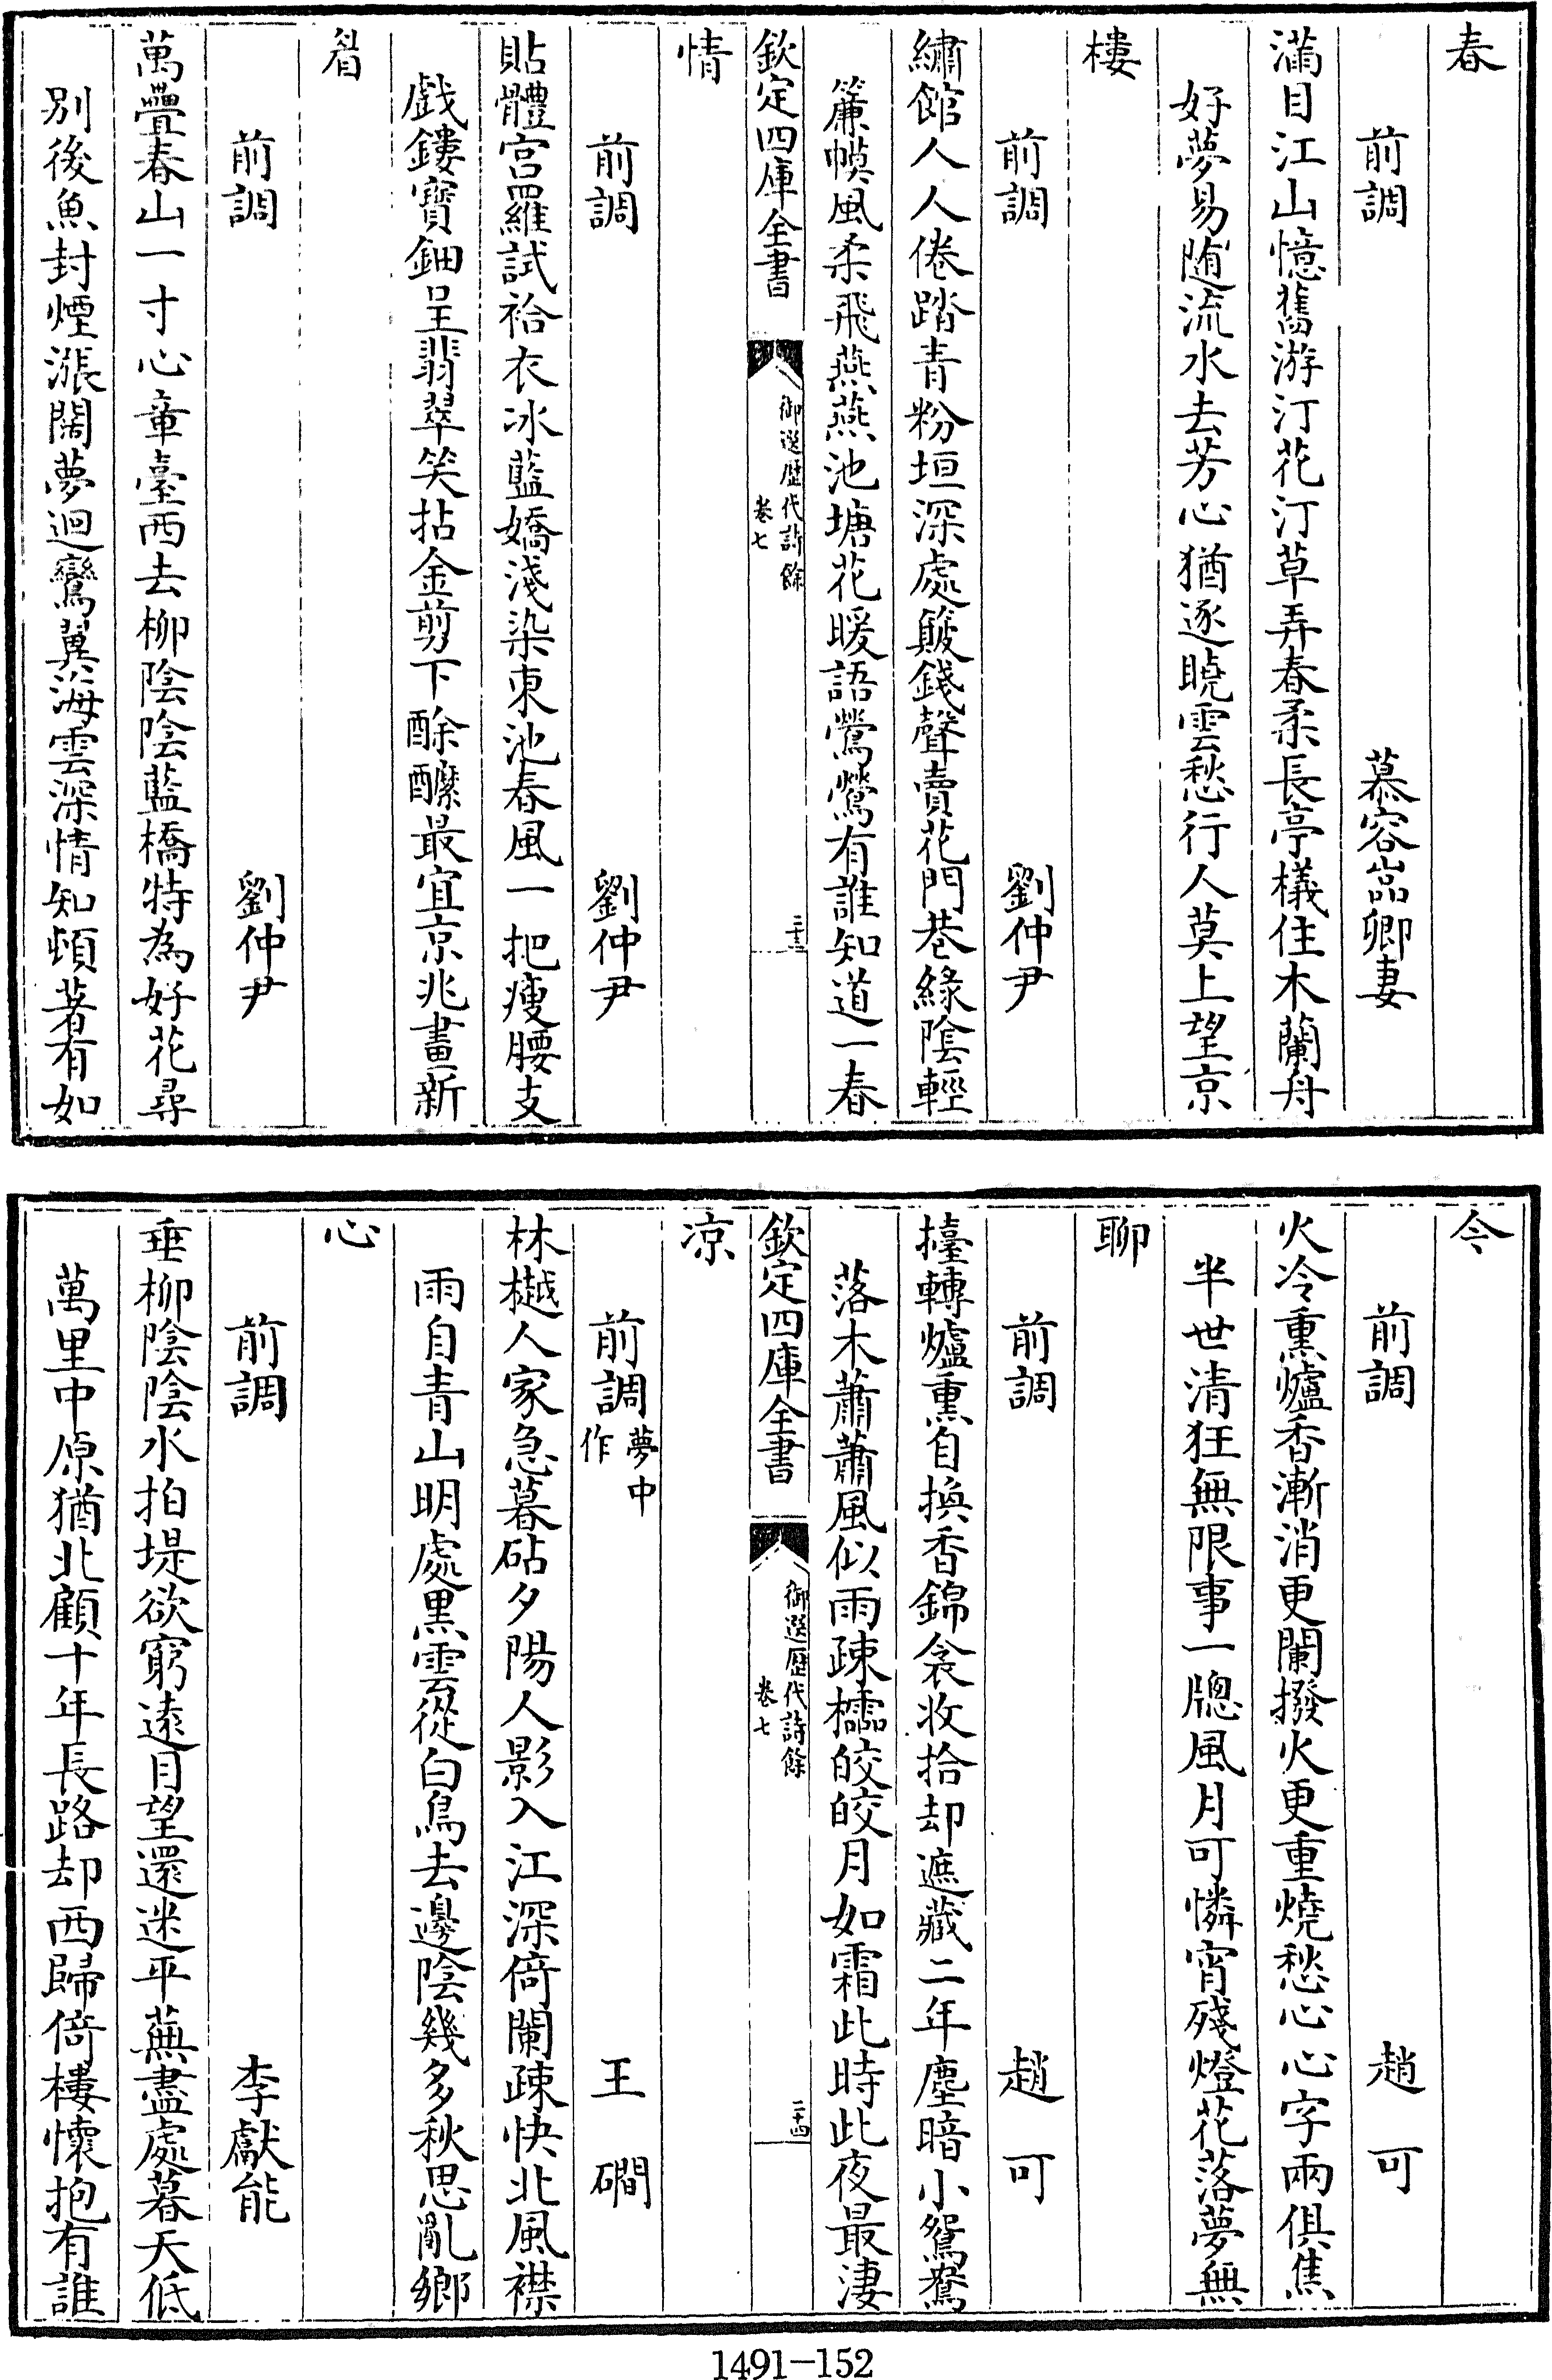 春
前調
慕容嵓卿妻
滿目江山憶舊游汀花汀草弄春柔長亭檥住木蘭舟
好夢易隨流水去芳心猶逐曉雲愁行人莫上望京
樓
前調
劉仲尹
繡館人人倦踏青粉垣深處簸錢聲賣花門巷綠陰輕
簾幙風柔飛燕燕池塘花暖語鶯鶯有誰知道一春
欽定四庫全書
御選歷代詩餘
卷七
二十三
情
前調
劉仲尹
貼體宫羅試袷衣冰藍嬌淺染東池春風一把瘦腰支
戲鏤寶鈿呈翡翠笑拈金剪下酴醿最宜京兆畫新
眉
前調
劉仲尹
萬疊春山一寸心章臺西去柳陰陰藍橋特為好花尋
別後魚封煙漲闊夢迴鸞翼海雲深情知頓著有如
今
前調
趙可
火冷熏爐香漸消更闌撥火更重燒愁心心字兩俱焦
半世清狂無限事一牕風月可憐宵殘燈花落夢無
聊
前調
趙可
擡轉爐熏自換香錦衾收拾却遮藏二年塵暗小鴛鴦
落木蕭蕭風似雨疎櫺皎皎月如霜此時此夜最淒
欽定四庫全書
御選歷代詩餘
卷七
二十四
凉
前調夢中作
王磵
林樾人家急暮砧夕陽人影入江深倚闌疎快北風襟
雨自青山明處黒雲從白鳥去邊陰幾多秋思亂鄉
心
前調
李獻能
垂柳陰陰水拍堤欲窮遠目望還迷平蕪盡處暮天低
萬里中原猶北顧十年長路却西歸倚樓懷抱有誰
1491-152